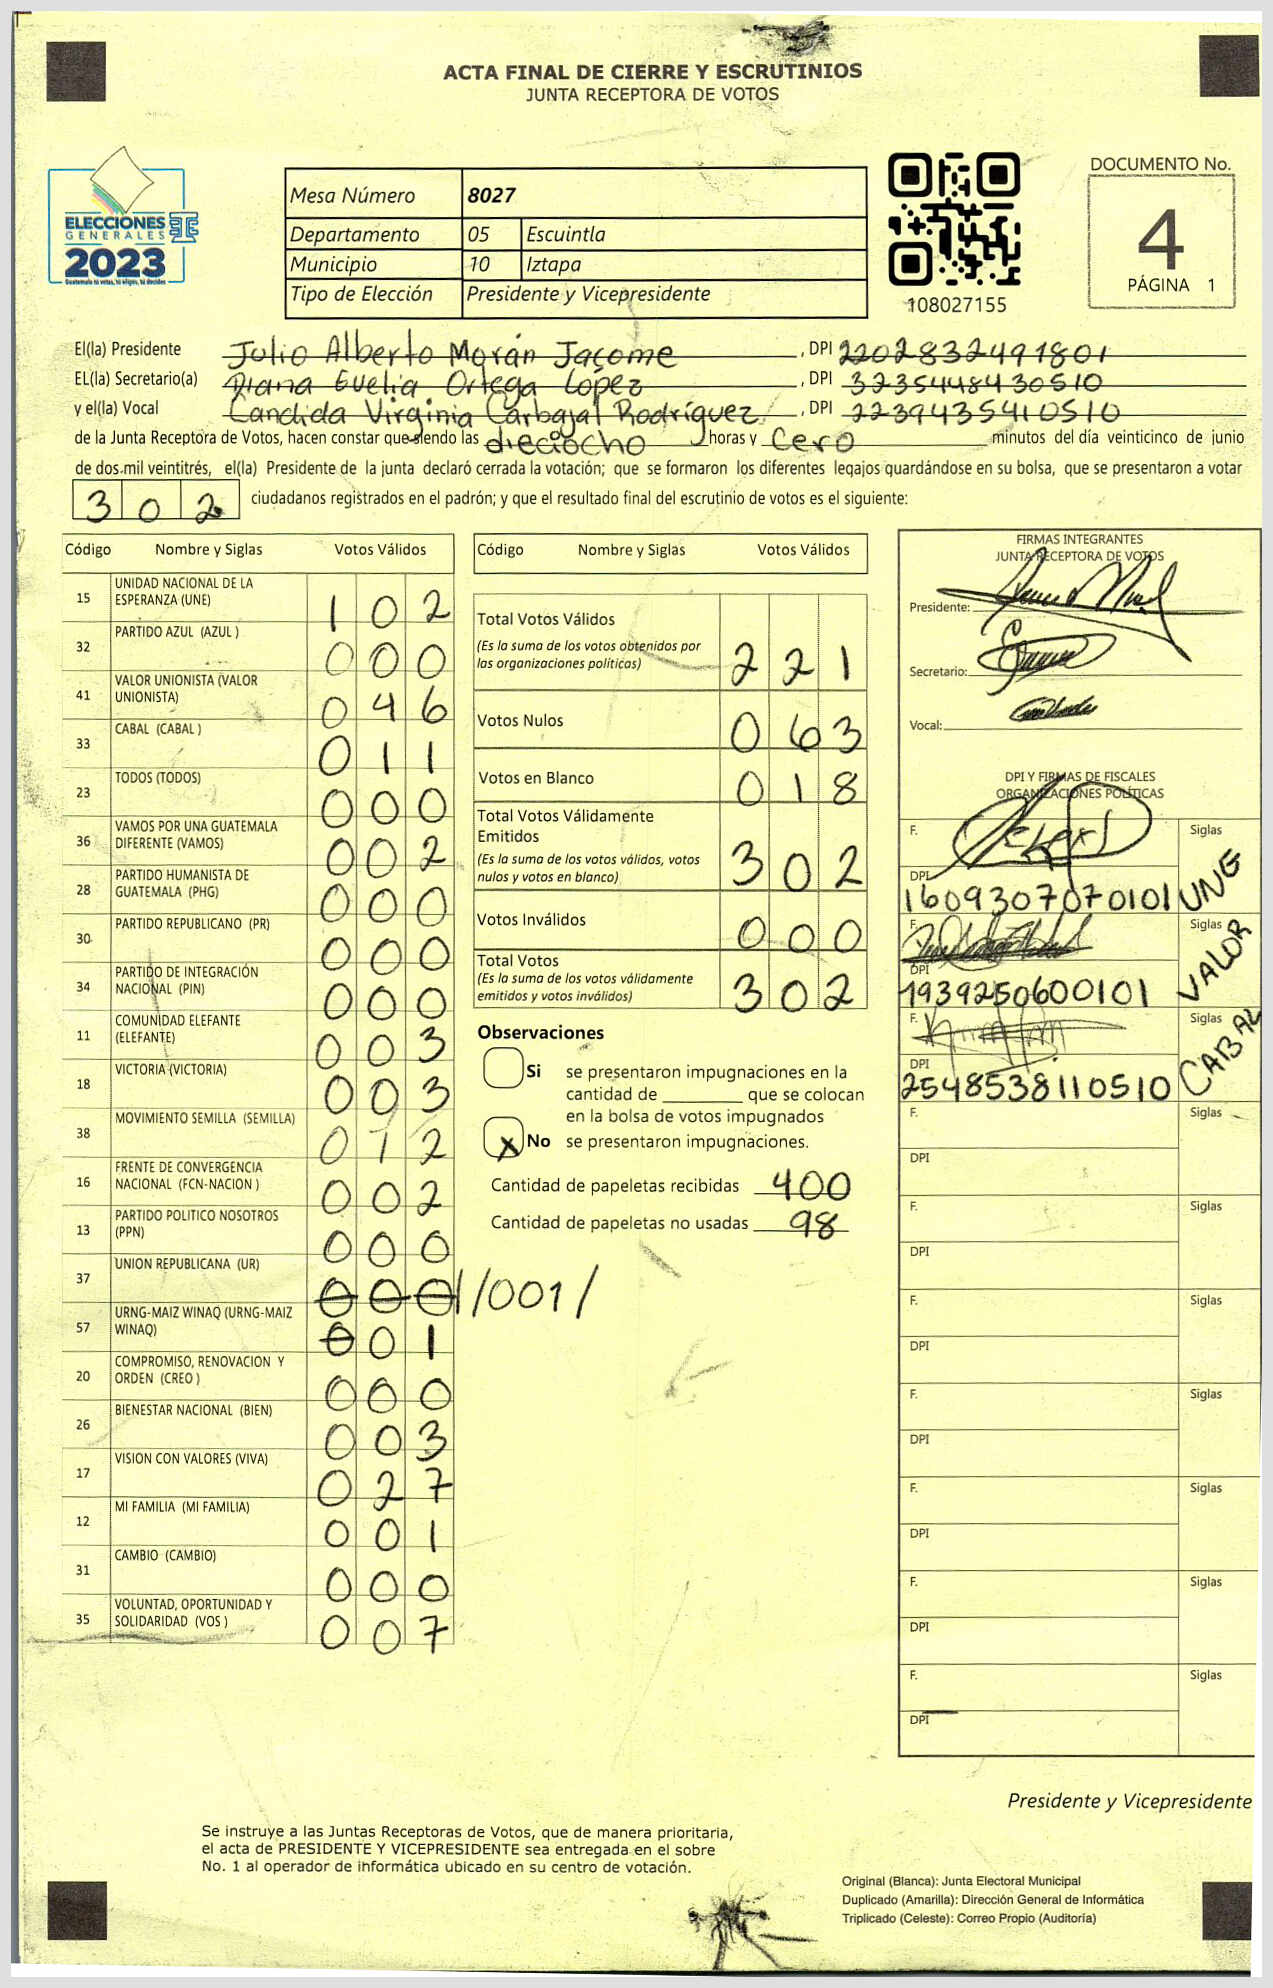 ACTA FINAL DE CIERRE Y ESCRUTINIOS
JUNTA RECEPTORA DE VOTOS
ELECCIONES
GENERALES
2023
Guatemala tú votas, tú eliges, tú decides
Mesa Número 8027
Departamento 05 Escuintla
Municipio 10 Iztapa
Tipo de Elección Presidente y Vicepresidente
108027155
DOCUMENTO No.
4
PÁGINA 1
El(la) Presidente Julio Alberto Morán Jacome , DPI 2202832491801
EL(la) Secretario(a) Diana Evelia Ortega López , DPI 3235448430510
y el(la) Vocal Candida Virginia Carbajal Rodríguez , DPI 2239435410510
de la Junta Receptora de Votos, hacen constar que siendo las dieciocho horas y cero minutos del día veinticinco de junio
de dos mil veintitrés, el(la) Presidente de la junta declaró cerrada la votación; que se formaron los diferentes legajos guardándose en su bolsa, que se presentaron a votar
302 ciudadanos registrados en el padrón; y que el resultado final del escrutinio de votos es el siguiente:
Código Nombre y Siglas Votos Válidos
15 UNIDAD NACIONAL DE LA ESPERANZA (UNE) 102
32 PARTIDO AZUL (AZUL ) 000
41 VALOR UNIONISTA (VALOR UNIONISTA) 046
33 CABAL (CABAL ) 011
23 TODOS (TODOS) 000
36 VAMOS POR UNA GUATEMALA DIFERENTE (VAMOS) 002
28 PARTIDO HUMANISTA DE GUATEMALA (PHG) 000
30 PARTIDO REPUBLICANO (PR) 000
34 PARTIDO DE INTEGRACIÓN NACIONAL (PIN) 000
11 COMUNIDAD ELEFANTE (ELEFANTE) 003
18 VICTORIA (VICTORIA) 003
38 MOVIMIENTO SEMILLA (SEMILLA) 012
16 FRENTE DE CONVERGENCIA NACIONAL (FCN-NACION ) 002
13 PARTIDO POLITICO NOSOTROS (PPN) 000
37 UNION REPUBLICANA (UR) 000 /001/
57 URNG-MAIZ WINAQ (URNG-MAIZ WINAQ) 001
20 COMPROMISO, RENOVACION Y ORDEN (CREO ) 000
26 BIENESTAR NACIONAL (BIEN) 003
17 VISION CON VALORES (VIVA) 027
12 MI FAMILIA (MI FAMILIA) 001
31 CAMBIO (CAMBIO) 000
35 VOLUNTAD, OPORTUNIDAD Y SOLIDARIDAD (VOS ) 007
Código Nombre y Siglas Votos Válidos
Total Votos Válidos
(Es la suma de los votos obtenidos por
las organizaciones políticas) 221
Votos Nulos 063
Votos en Blanco 018
Total Votos Válidamente
Emitidos
(Es la suma de los votos válidos, votos
nulos y votos en blanco) 302
Votos Inválidos 000
Total Votos
(Es la suma de los votos válidamente
emitidos y votos inválidos) 302
Observaciones
Si se presentaron impugnaciones en la
cantidad de ________ que se colocan
en la bolsa de votos impugnados
X No se presentaron impugnaciones.
Cantidad de papeletas recibidas 400
Cantidad de papeletas no usadas 98
FIRMAS INTEGRANTES
JUNTA RECEPTORA DE VOTOS
Presidente:
Secretario:
Vocal:
DPI Y FIRMAS DE FISCALES
ORGANIZACIONES POLÍTICAS
F. Siglas
DPI 1609307070101 UNE
F. Siglas
DPI 1939250600101 VALOR
F. Siglas
DPI 2548538110510 CABAL
F. Siglas
DPI
F. Siglas
DPI
F. Siglas
DPI
F. Siglas
DPI
F. Siglas
DPI
F. Siglas
DPI
F. Siglas
DPI
Presidente y Vicepresidente
Se instruye a las Juntas Receptoras de Votos, que de manera prioritaria,
el acta de PRESIDENTE Y VICEPRESIDENTE sea entregada en el sobre
No. 1 al operador de informática ubicado en su centro de votación.
Original (Blanca): Junta Electoral Municipal
Duplicado (Amarilla): Dirección General de Informática
Triplicado (Celeste): Correo Propio (Auditoría)